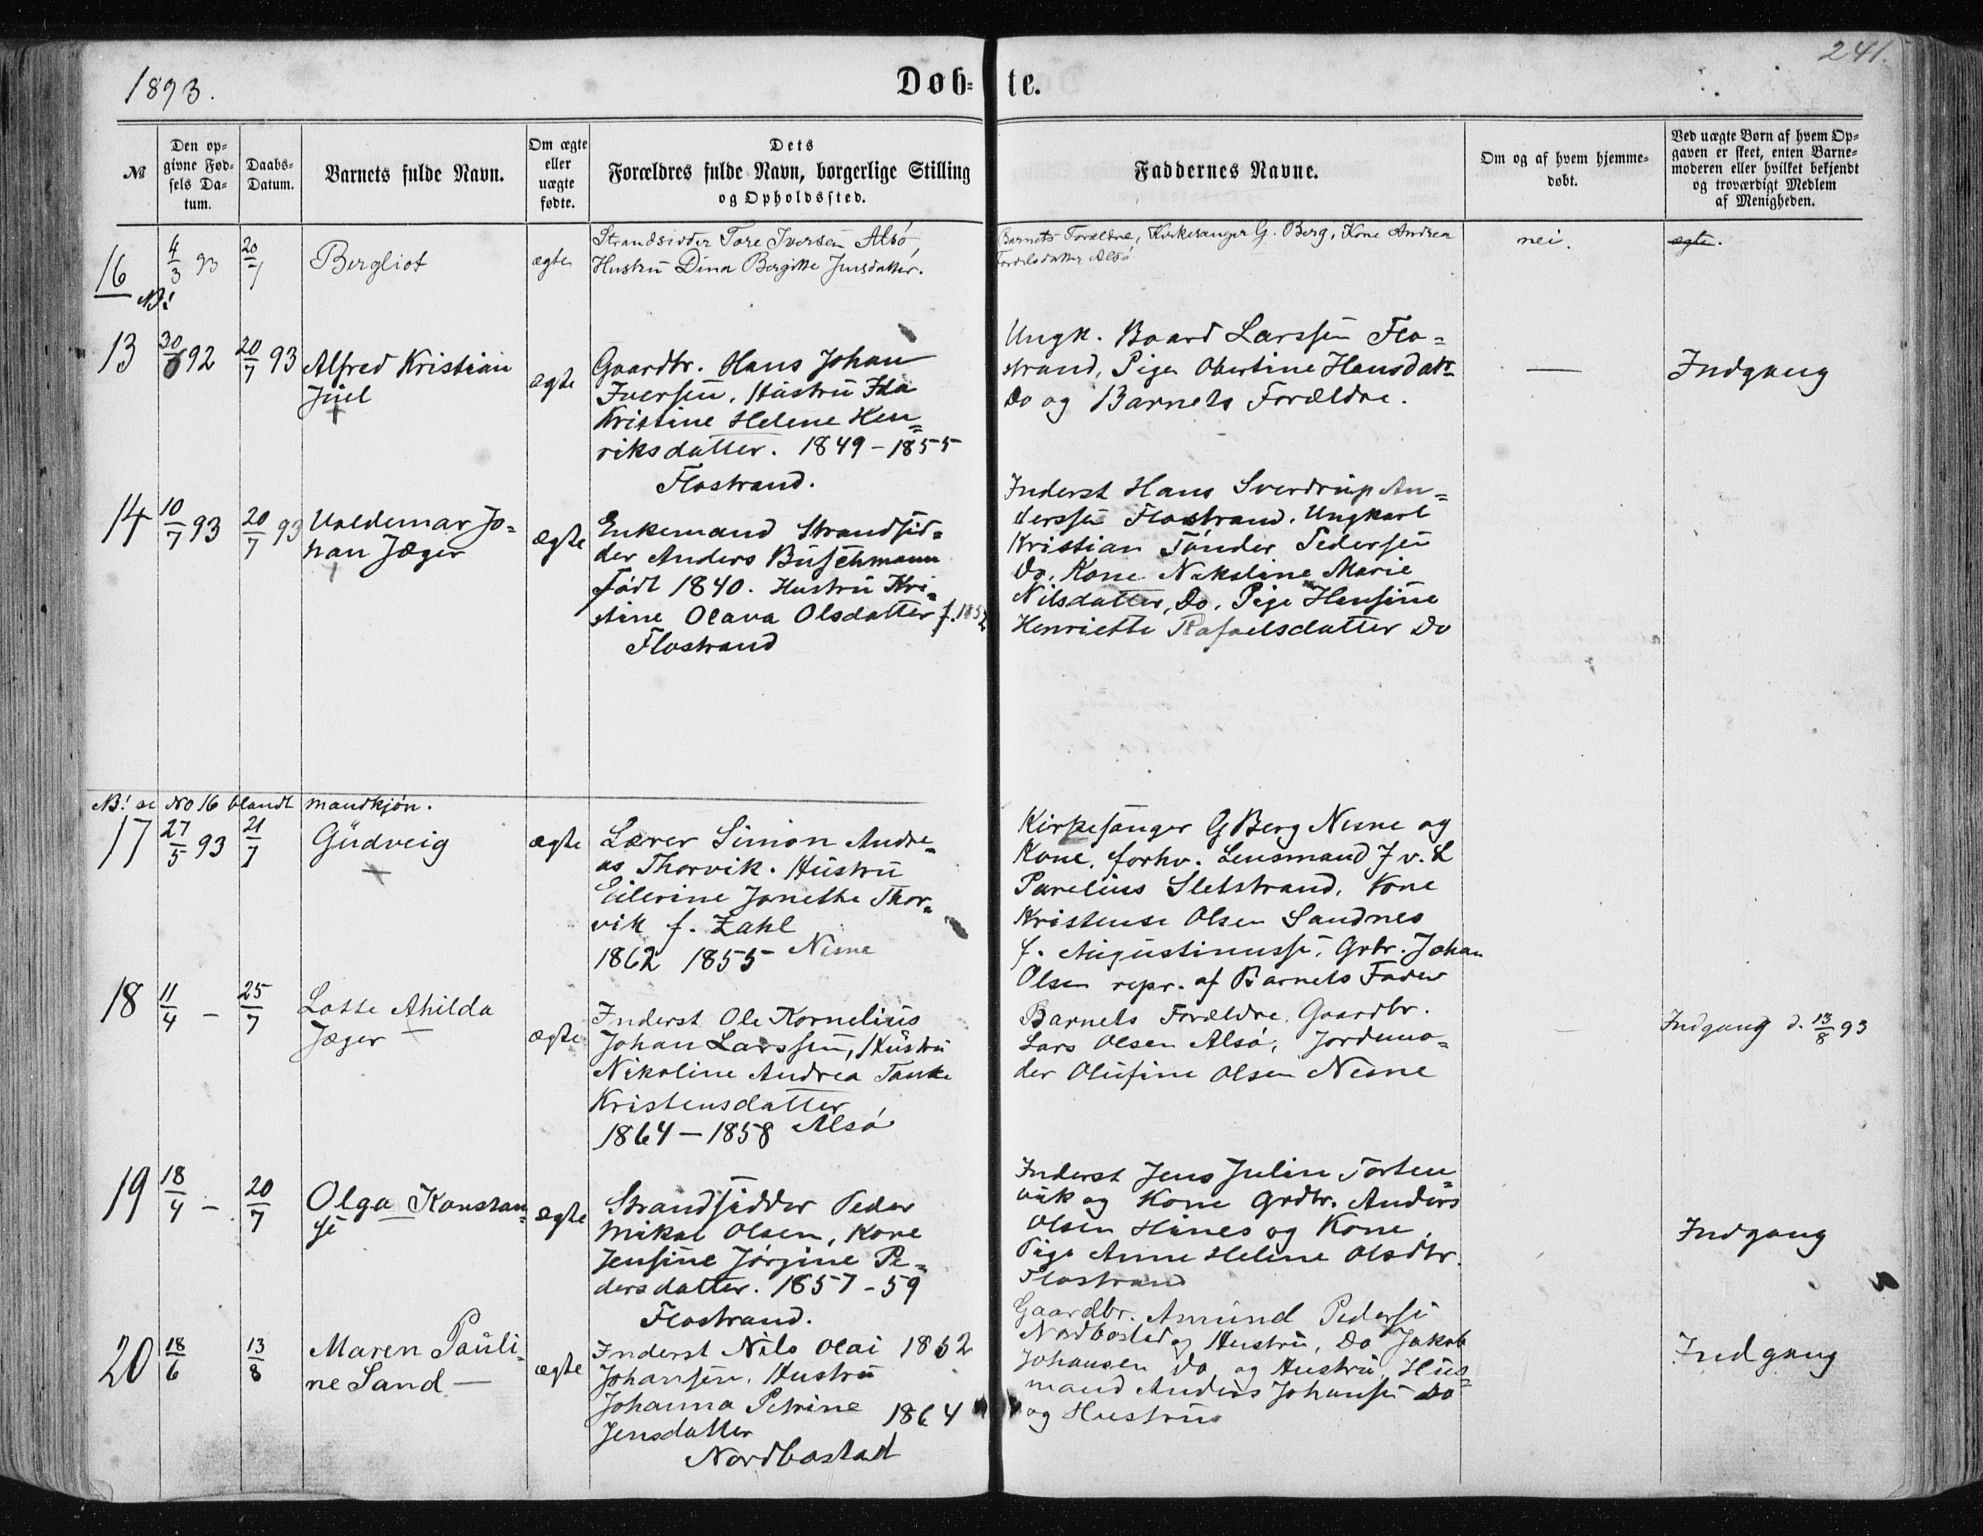 241.
1893.
Døb-
te.
№
Den op-
givne Fød-
sels Da-
tum.
Daabs-
Datum.
Barnets fulde Navn.
Om ægte
eller
uægte
fødte.
Dets
Forældres fulde Navn, borgerlige Stilling
og Opholdssted.
Faddernes Navne.
Om og af hvem hjemme-
døbt.
Ved uægte Børn af hvem Op-
gaven er skeet, enten Barne-
moderen eller hvilket bekjendt
og troværdigt Medlem
af Menigheden.
16
NB!
4/3 93
20/7
Bergliot
ægte
Strandsidder Tore Iversen Alsø,
Hustru Dina Bergitte Jensdatter.
Barnets Forældre, Kirkesanger G. Berg, Kone Andrea
Alsø
nei.
ægte.
13
30/6 92
20/7 93
Alfred Kristian
Juel
ægte
Gaardbr. Hans Johan
Iversen, Hustru Ida
Kristine Helene Hen-
riksdatter. 1849 - 1855
Flostrand.
Ungk. Baard Larssen Flo-
strand, Pige Obertine Hansdatt
Do og Barnets Forældre.
—
Indgang
14
10/7 93
20/7 93
Valdemar Jo-
han Jæger
ægte
Enkemand Strandsid-
der Anders Buschmann
Født 1840. Hustru Kri-
stine Olava Olsdatter f. 1852
Flostrand
Inderst Hans Sverdrup An-
derssen Flostrand. Ungkarl
Kristian Tønder Pedersen
Do. Kone Nikoline Marie
Nilsdatter, Do. Pige Hensine
Henriette Rafaelsdatter Do
NB! se No 16 blandt mandkjøn.
17
27/5 93
21/7
Gudveig
ægte
Lærer Simon Andre-
as Thorvik. Hustru
Eilerine Jonetha Thor-
vik f. Zahl
1862 1855 Nesne
Kirkesanger G Berg Nesne og
Kone, forhv. Lensmand J v. L
Parelius Sletstrand, Kone
Kristense Olsen Sandnes
f. Augustinusse, Grbr. Johan
Olsen repr. af Barnets Fader
18
11/4 -
25/7
Lotte Ahilda
Jæger
ægte
Inderst Ole Kornelius
Johan Larssen, Hustru
Nikoline Andrea Tanke
Kristensdatter
1864 - 1858 Alsø
Barnets Forældre. Gaardbr.
Lars Olsen Alsø, Jordmo-
der Olufine Olsen Nesne
Indgang d. 13/8 93
19
18/4 -
20/7
Olga Konstan-
se
ægte
Strandsidder Peder
Mikal Olsen, Kone
Jensine Jørgine Pe-
dersdatter. 1857 - 59
Flostrand.
Inderst Jens Julin Torten-
vik og Kone Grdbr. Anders
Olsen Hines og Kone,
Pige Anne Helene Olsdtr.
Flostrand
Indgang
20
18/6
13/8
Maren Pauli-
ne Sand —
ægte
Inderst Nils Olai 1862
Johansen, Hustru
Johanna Petrine 1864
Jensdatter
Nordbostad
Gaardbr. Amund Pederse
Nordbostad og Hustru, Do Jakob
Johansen Do og Hustru, Hus-
mand Anders Johansen Do
og Hustru
Indgang